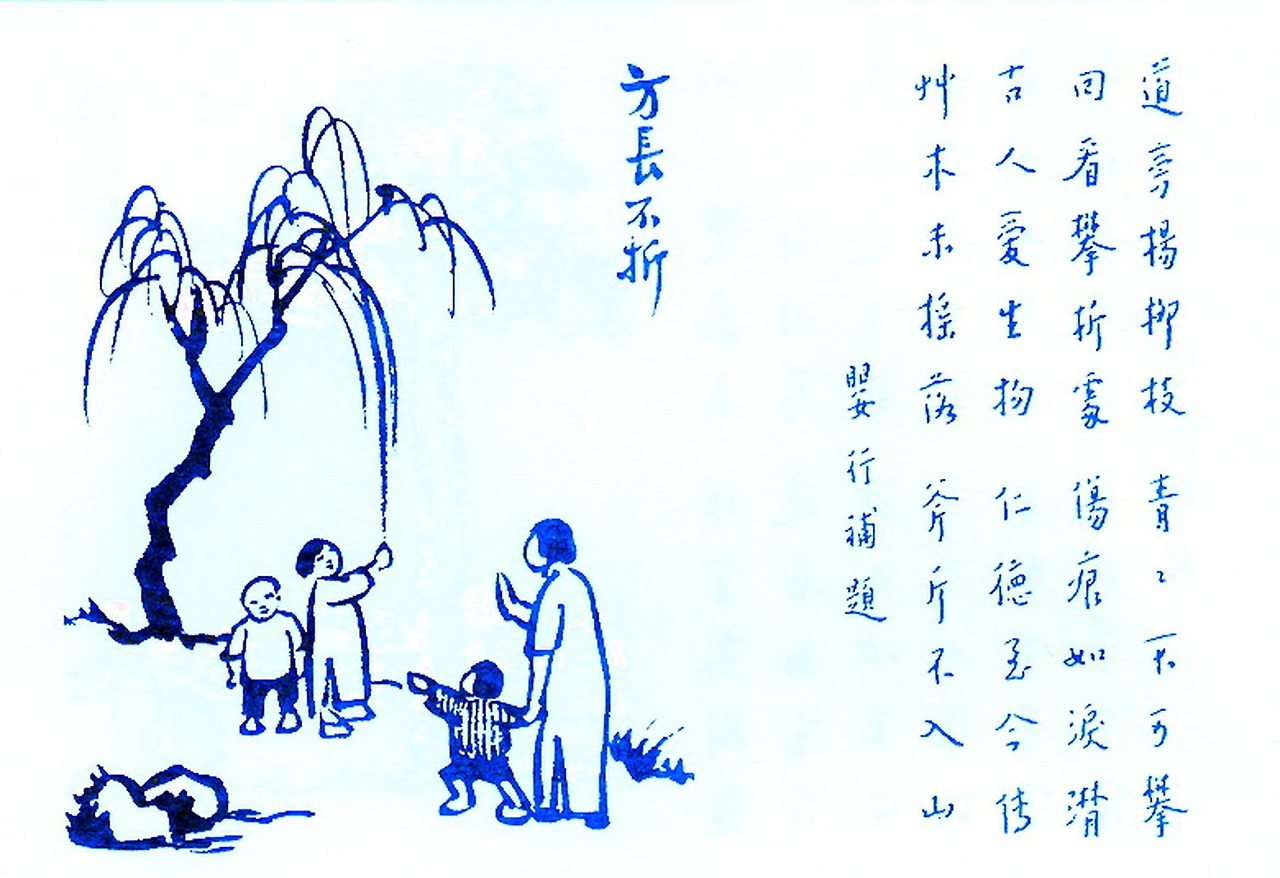 道旁楊柳枝 青々不可攀
回看攀折處 傷痕如淚潸
古人愛生物 仁德至今傳
艸木未搖落 斧斤不入山
嬰行補題
方長不折